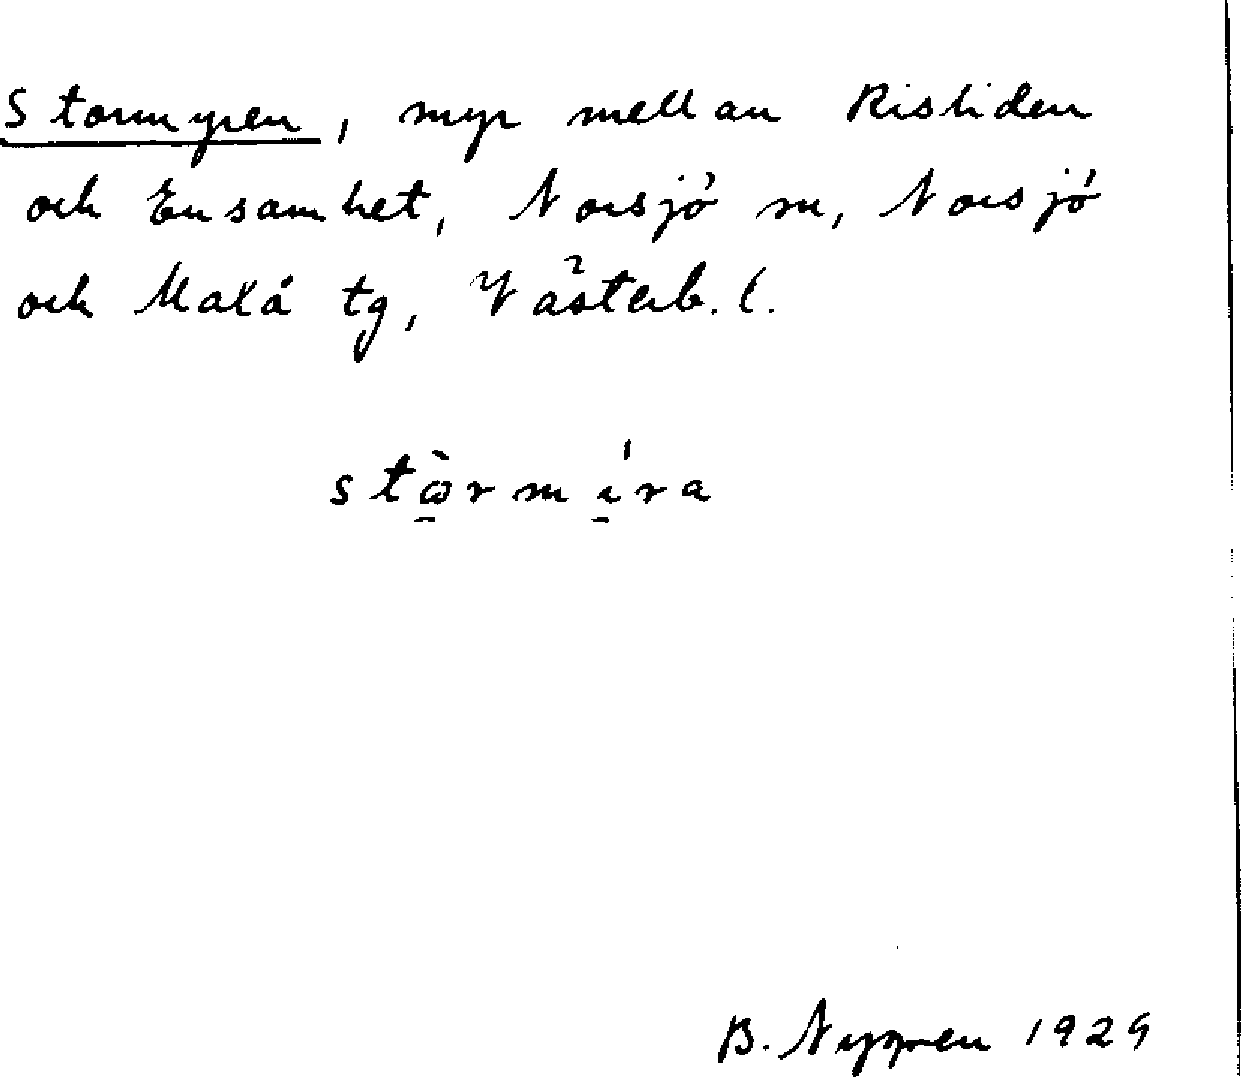 Stormyren, myr mellan Risliden
och Ensamhet, Norsjö sn, Norsjö
och Malå tg, Västerb. l.
stὼ̱rmı̱́ra
B. Nygren 1929